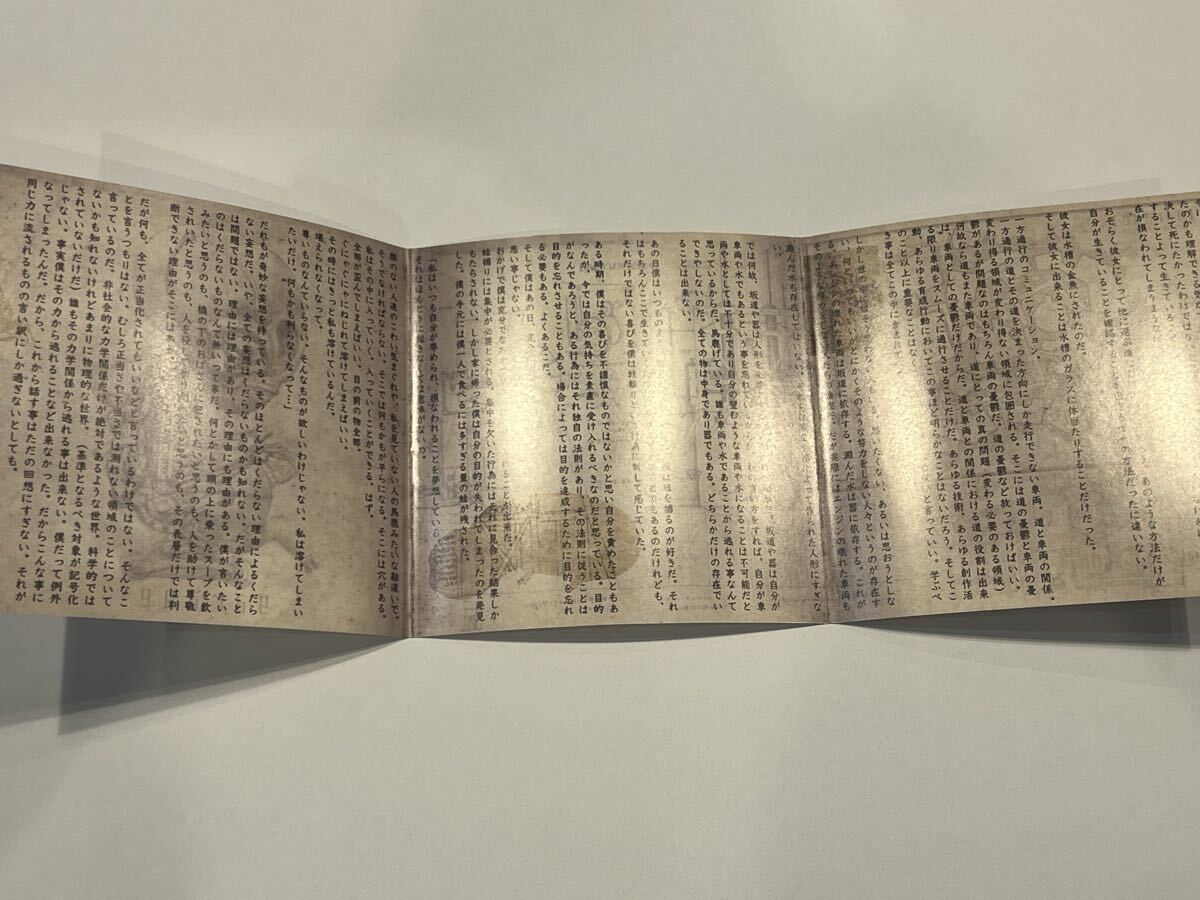 あのような方法だけが
たのかも理解で
決して死にたかったわけでは
することよって生きている
在が損なわれてしまうまう
おそらく彼女にとって他に
の方法だったに違いない。
自分が生きていることを確認する
彼女は水槽の金魚にされたのだ。
そして彼女に出来ることは水槽のガラスに体当たりすることだけだった。
一方通行のコミュニケーション。
一方通行の道とその道を決まった方向にしか走行できない車両。道と車両の関係。
変わり得る領域が変わり得ない領域に包囲される。そこには道の憂鬱と車両の憂
鬱があるが問題なのはもちろん車両の憂鬱だ。道の憂鬱など放っておけばいい。
何故なら道もまた車両であり、車両にとっての真の問題(変わる必要のある領域)
は、車両としての憂鬱だけだから。道と車両との関係における道の役割は出来
る限り車両をスムーズに通行させることだけだ。あらゆる技術、あらゆる創作活
動、あらゆる育成行動においてこの事ほど明らかなことはないだろう。そしてこ
のこと以上に重要なことはな
き事は全てこの中に含まれ
と言っていい。学ぶべ
しかし世の中には
あるいは思おうとしな
い、何と
がとにかくそのような努力をしない人々というのが存在す
る。エンジンの壊れた車両は坂道に依存する。澱んだ水は器に依存する。これが
実際にはエンジンの壊れた車両も
澱んだ水も存在してはいない。
によって作られた人形にすぎな
では何故、坂道や器は人形を必要
坂道や器は自分が
車両や水でもあるという事を忘れて
方をすれば、自分が車
両や水としては不十分であり自分の望むような車両や水になることは不可能だと
思っているからだ。馬鹿げている。誰も車両や水であることから逃れる事なんて
できやしないのだ。全ての物は中身であり器でもある。どちらかだけの存在でい
ることは出来ない。
あの日僕はいつもの
は蛙を捕るのが好きだ。それ
はもちろんここで生きていく
でもあるのだけれども、
それだけではない喜びを僕は蛙捕り
して感じていた。
ある時期、僕はその喜びを不謹慎なものではないかと思い自分を責めたこともあ
ったが、今では自分の気持ちを素直に受け入れるべきなのだと思っている。目的
がなんであろうと、ある行為にはそれ独自の法則があり、その法則に従うことは
目的を忘れさせることもある。場合によっては目的を達成するために目的を忘れ
る必要もある。よくあることだ。
そして僕はあの日、ま
ることが出来た。
悪い事じゃない。
おかげで僕は寛
蛙捕りには集中が必要とされる。集中を欠いた行為にはそれに見合った結果しか
もたらされない。しかし家に帰った僕は自分の目的が失われてしまったのを発見
した。僕の手元には僕一人で食べるには多すぎる量の蛙が残された。
「私はいつも自分が辱められ、損なわれることを夢想している。
それはほんと
なくては意味がないの。
顔のない人達のこわい気まぐれや、私を見ていない人の馬鹿みたいな勘違いで。
そうでなければならない。そこでは何もかもが平らになる。そこには穴がある。
私はその中に入っていく、入っていくことができる。はず。
全部が歪んでしまえばいい、目の前の物全部。
ぐにゃぐにゃにねじれて溶けてしまえばいい。
その時にはきっと私も溶けているんだ。
堪えられなくなって。
尊いものなんていらない。そんなものが欲しいわけじゃない。私は溶けてしまい
たいだけ。何もかも判らなくなって…」
だれもが奇妙な妄想を持っている。そのほとんどはくだらない理由によるくだら
ない妄想だ。いや、全ての妄想はくだらないものかも知れない。だがそんなこと
は問題ではない。理由には理由があり、その理由にも理由がある。僕が言いたい
のはくだらないものなんて無いって事だ。何とかして頭の上に乗ったスープを飲
みたいと思うのも、橋の下のおばさんに犯されたいと思うのも、人を助けて尊敬
されたいと思うのも、人を殺
と思うのも、その表層だけでは判
断できない理由がそこにはある。
だが何も、全てが正当化されてもいいなどと言っているわけではない。そんなこ
とを言うつもりはない。むしろ正当さや不当さでは測れない領域のことについて
言っているのだ。非社会的な力学関係だけが絶対であるような世界。科学的では
ないかも知れないけれどあまりに物理的な世界。(基準となるべき対象が記号化
されていないだけだ)誰もその力学関係から逃れる事は出来ない。僕だって例外
じゃない。事実僕はその力から逃れることなど出来なかった。だからこんな事に
なってしまったんだ。だから、これから話す事はただの回想にすぎない。それが
同じ力に流されるものの言い訳にしか過ぎないとしても。